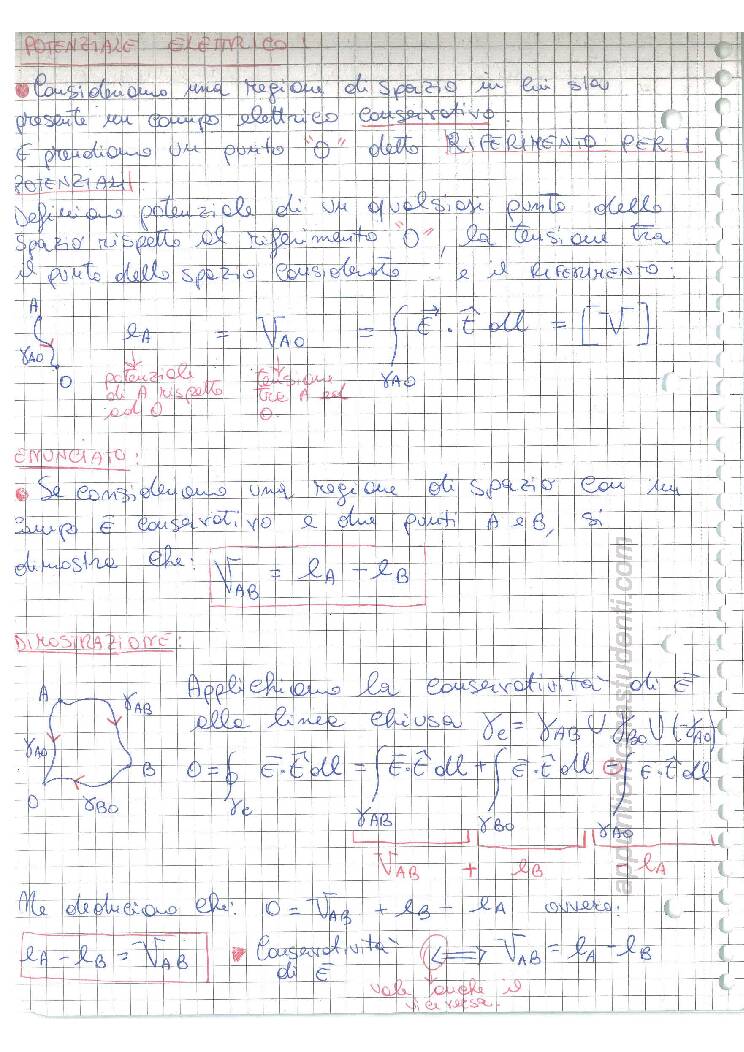 POTENZIALE ELETTRICO:
Consideriamo una regione di spazio in cui sia
presente un campo elettrico conservativo.
E prendiamo un punto "O" detto RIFERIMENTO PER I
POTENZIALI
Definiamo potenziale di un qualsiasi punto dello
spazio rispetto al riferimento "O", la tensione tra
il punto dello spazio considerato e il RIFERIMENTO:
A
γAO
O
eA = VAO = ∫γAO E⃗ · t̂ dl = [V]
potenziale di A rispetto ad O
tensione tra A ed O.
ENUNCIATO:
Se consideriamo una regione di spazio con un
campo E̅ conservativo e due punti A e B, si
dimostra che: VAB = eA - eB
DIMOSTRAZIONE:
A
γAB
γAO
B
O
γBO
Applichiamo la conservatività di E̅
alla linea chiusa γc = γAB ∪ γBO ∪ (-γAO)
O = ∮γc E̅·t̂ dl = ∫γAB E̅·t̂ dl + ∫γBO E̅·t̂ dl - ∫γAO E·t̂ dl
VAB + eB - eA
Ne deduciamo che: O = VAB + eB - eA ovvero:
eA - eB = VAB
Conservatività di E̅ <=> VAB = eA - eB
vale anche il
viceversa.